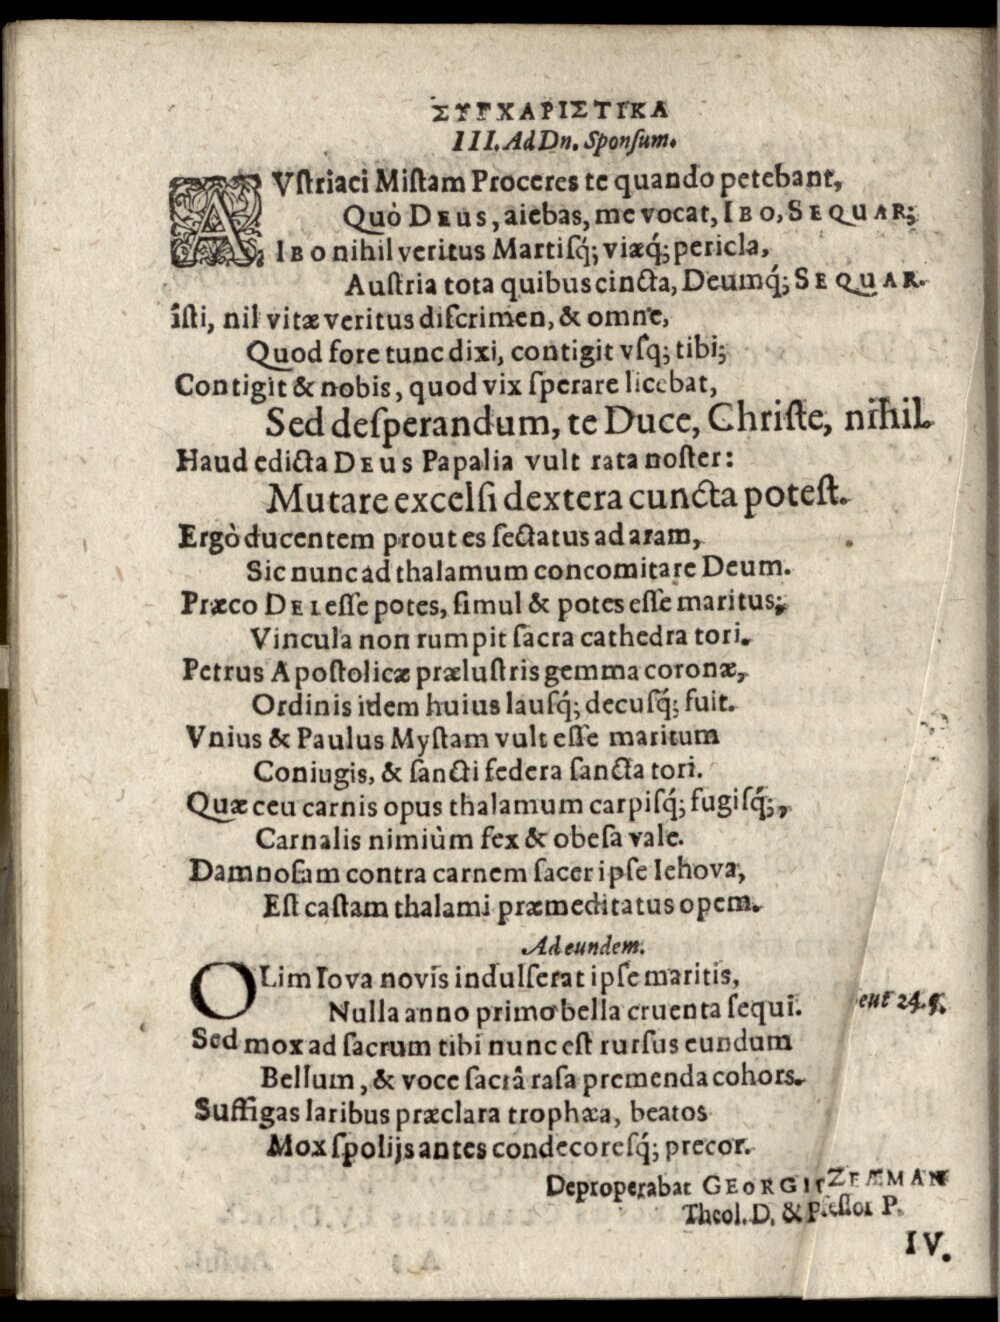 ΣΥΓΧΑΡΙΣΤΙΚΑ
III. Ad Dn. Sponſum.
AVſtriaci Miſtam Proceres te quando petebant,
Quò DEUS, aiebas, me vocat, IBO, SEQUAR;
IBO nihil veritus Martiſq́; viæq́; pericla,
Auſtria tota quibus cincta, Deumq́; SEQUAR.
îſti, nil vitæ veritus diſcrimen, & omne,
Quod fore tunc dixi, contigit vſq; tibi;
Contigit & nobis, quod vix ſperare licebat,
Sed deſperandum, te Duce, Chriſte, nihil.
Haud edicta DEUS Papalia vult rata noſter:
Mutare excelſi dextera cuncta poteſt.
Ergò ducentem prout es ſectatus ad aram,
Sic nunc ad thalamum concomitare Deum.
Præco DEI eſſe potes, ſimul & potes eſſe maritus;
Vincula non rumpit ſacra cathedra tori.
Petrus Apoſtolicæ præluſtris gemma coronæ,
Ordinis idem huius lauſq́; decuſq́; fuit.
Vnius & Paulus Myſtam vult eſſe maritum
Coniugis, & ſancti federa ſancta tori.
Quæ ceu carnis opus thalamum carpiſq́; fugiſq́;,
Carnalis nimiùm fex & obeſa vale.
Damnoſam contra carnem ſacer ipſe Iehova,
Eſt caſtam thalami præmeditatus opem.
Ad eundem.
OLim Iova novis indulſerat ipſe maritis,
Nulla anno primo bella cruenta ſequi. eut 24. 5.
Sed mox ad ſacrum tibi nunc eſt rurſus eundum
Bellum, & voce ſacrâ raſa premenda cohors.
Suffigas laribus præclara trophæa, beatos
Mox ſpolijs antes condecoreſq́; precor.
Deproperabat GEORGI ZEÆMAN
Theol. D. & P. feſſor P.
IV.